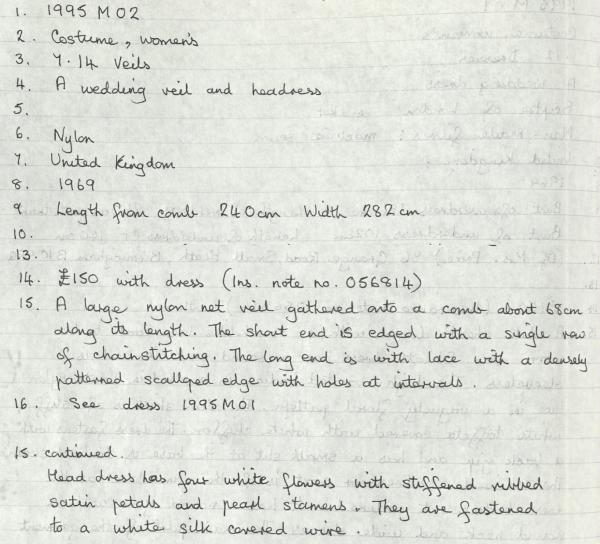 1. 1995 M02
2. Costume, women's
3. 7.14 Veils
4. A wedding veil and headress
5.
6. Nylon
7. United Kingdom
8. 1969
9 Length from comb 240cm Width 282cm
10.
13.
14. £150 with dress (Ins. note no. 056814)
15. A large nylon net veil gathered onto a comb about 68cm
along its length. The short end is edged with a single row
of chainstitching. The long end is with lace with a densely
patterned scalloped edge with holes at intervals.
16. See dress 1995M01
15. continued.
Head dress has four white flowers with stiffened ribbed
satin petals and pearl stamens. They are fastened
to a white silk covered wire.